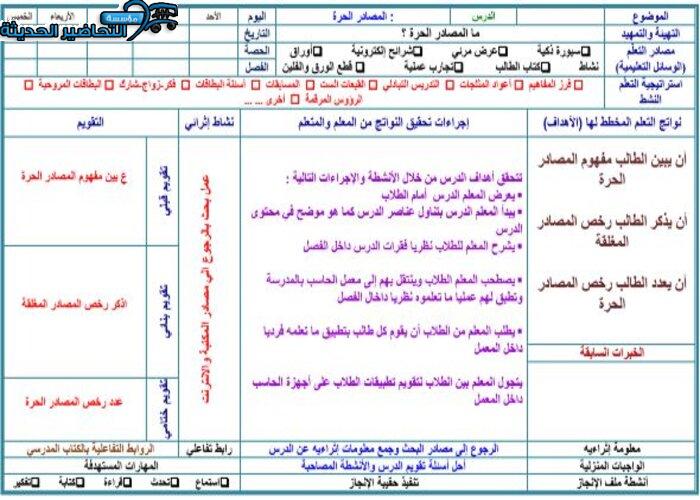 مؤسسة التحاضير الحديثة
الموضوع
الدرس : المصادر الحرة
اليوم
الأحد
الأربعاء
الخميس
التهيئة والتمهيد
ما المصادر الحرة ؟
التاريخ
مصادر التعلم
(الوسائل التعليمية)
□ سبورة ذكية □ عرض مرئي □ شرائح إلكترونية □ أوراق
نشاط □ كتاب الطالب □ تجارب عملية □ قطع الورق والفلين
الحصة
الفصل
استراتيجية التعلم
النشط
□ فرز المفاهيم □ أعواد المثلجات □ التدريس التبادلي □ القبعات الست □ المسابقات □ أسئلة البطاقات □ فكر-زواج-شارك □ البطاقات المروحية
□ الرؤوس المرقمة □ أخرى ... ...
نواتج التعلم المخطط لها (الأهداف)
إجراءات تحقيق النواتج من المعلم والمتعلم
نشاط إثرائي
التقويم
أن يبين الطالب مفهوم المصادر
الحرة
أن يذكر الطالب رخص المصادر
المغلقة
أن يعدد الطالب رخص المصادر
الحرة
الخبرات السابقة
تتحقق أهداف الدرس من خلال الأنشطة والإجراءات التالية :
▪ يعرض المعلم الدرس أمام الطلاب
▪ يبدأ المعلم الدرس بتناول عناصر الدرس كما هو موضح في محتوى
الدرس
▪ يشرح المعلم للطلاب نظريا فقرات الدرس داخل الفصل
▪ يصطحب المعلم الطلاب وينتقل بهم إلى معمل الحاسب بالمدرسة
وتطبق لهم عمليا ما تعلموه نظريا داخل الفصل
▪ يطلب المعلم من الطلاب أن يقوم كل طالب بتطبيق ما تعلمه فرديا
داخل المعمل
▪ يتجول المعلم بين الطلاب لتقويم تطبيقات الطلاب على أجهزة الحاسب
داخل المعمل
عمل بحث بالرجوع الي مصادر المكتبة والانترنت
تقويم قبلي
ع بين مفهوم المصادر الحرة
تقويم بنائي
اذكر رخص المصادر المغلقة
تقويم ختامي
عدد رخص المصادر الحرة
معلومة إثراءيه
الرجوع الى مصادر البحث وجمع معلومات إثراءيه عن الدرس
رابط تفاعلي
الروابط التفاعلية بالكتاب المدرسي
الواجبات المنزلية
أحل أسئلة تقويم الدرس والأنشطة المصاحبة
المهارات المستهدفة
أنشطة ملف الإنجاز
تنفيذ حقيبة الإنجاز
□ استماع □ تحدث □ قراءة □ كتابة □ تفكير